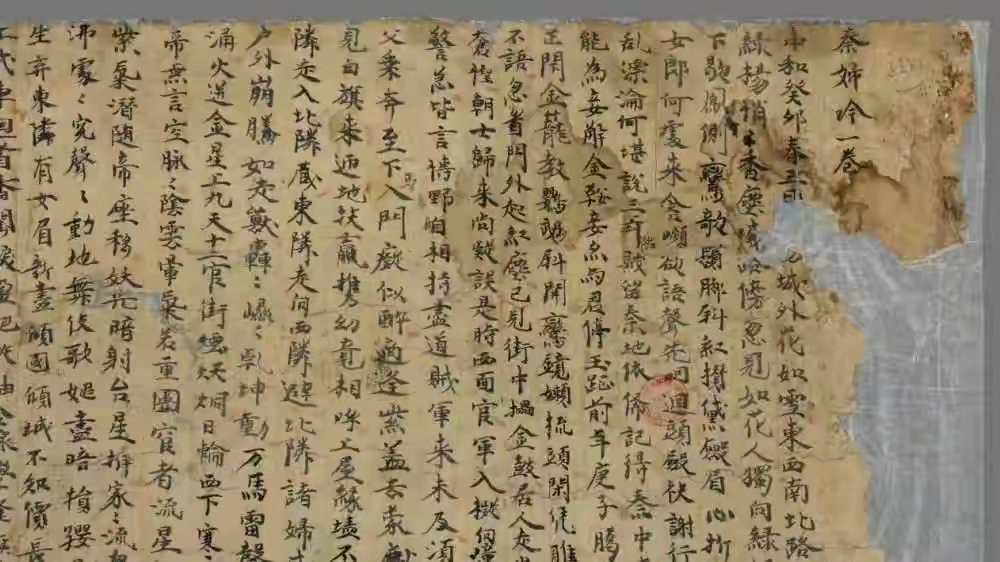 秦婦吟一卷
中和癸卯春三月 城外花如雪東西南北路
綠楊悄〻香塵滅路傍忽見如花人獨向綠
下歇側鸞歌鬢脚斜紅攢黛斂眉心折
女郎何處來含嚬欲語聲先咽迴頭斂袂謝行
亂漂淪何堪說三年陷賊留秦地依俙記得秦中
能為妾解金鞍妾亦為君停玉趾前年庚子臘
正閇金籠教鸚鵡斜開鸞鏡嬾梳頭閑凭雕
不語忽看門外起紅塵已見街中擂金鼓居人走
蒼惶朝士歸來尚疑誤是時西面官軍入擬向潼
警急皆言博野自相持盡道賊軍來未及須
父乘奔至下入門癡似醉適逢紫蓋去蒙
見白旗來迊地扶羸携幼竟相呼上屋緣墻不
隣走入北隣藏東隣走向西隣避北隣諸婦
戶外崩騰如走獸轟〻〻乾坤動万馬雷聲
涌火迸金星上九天十二官街煙烔日輪西下寒
帝無言空脉〻陰雲暈氣若重圍宦者流星
紫氣潛隨帝座移妖光暗射台星拆家〻流
沸處〻冤聲〻動地舞伎歌姬盡暗捐嬰
生弃東隣有女眉新畫傾國傾城不知價長
戈車迴首香閨淚盈把